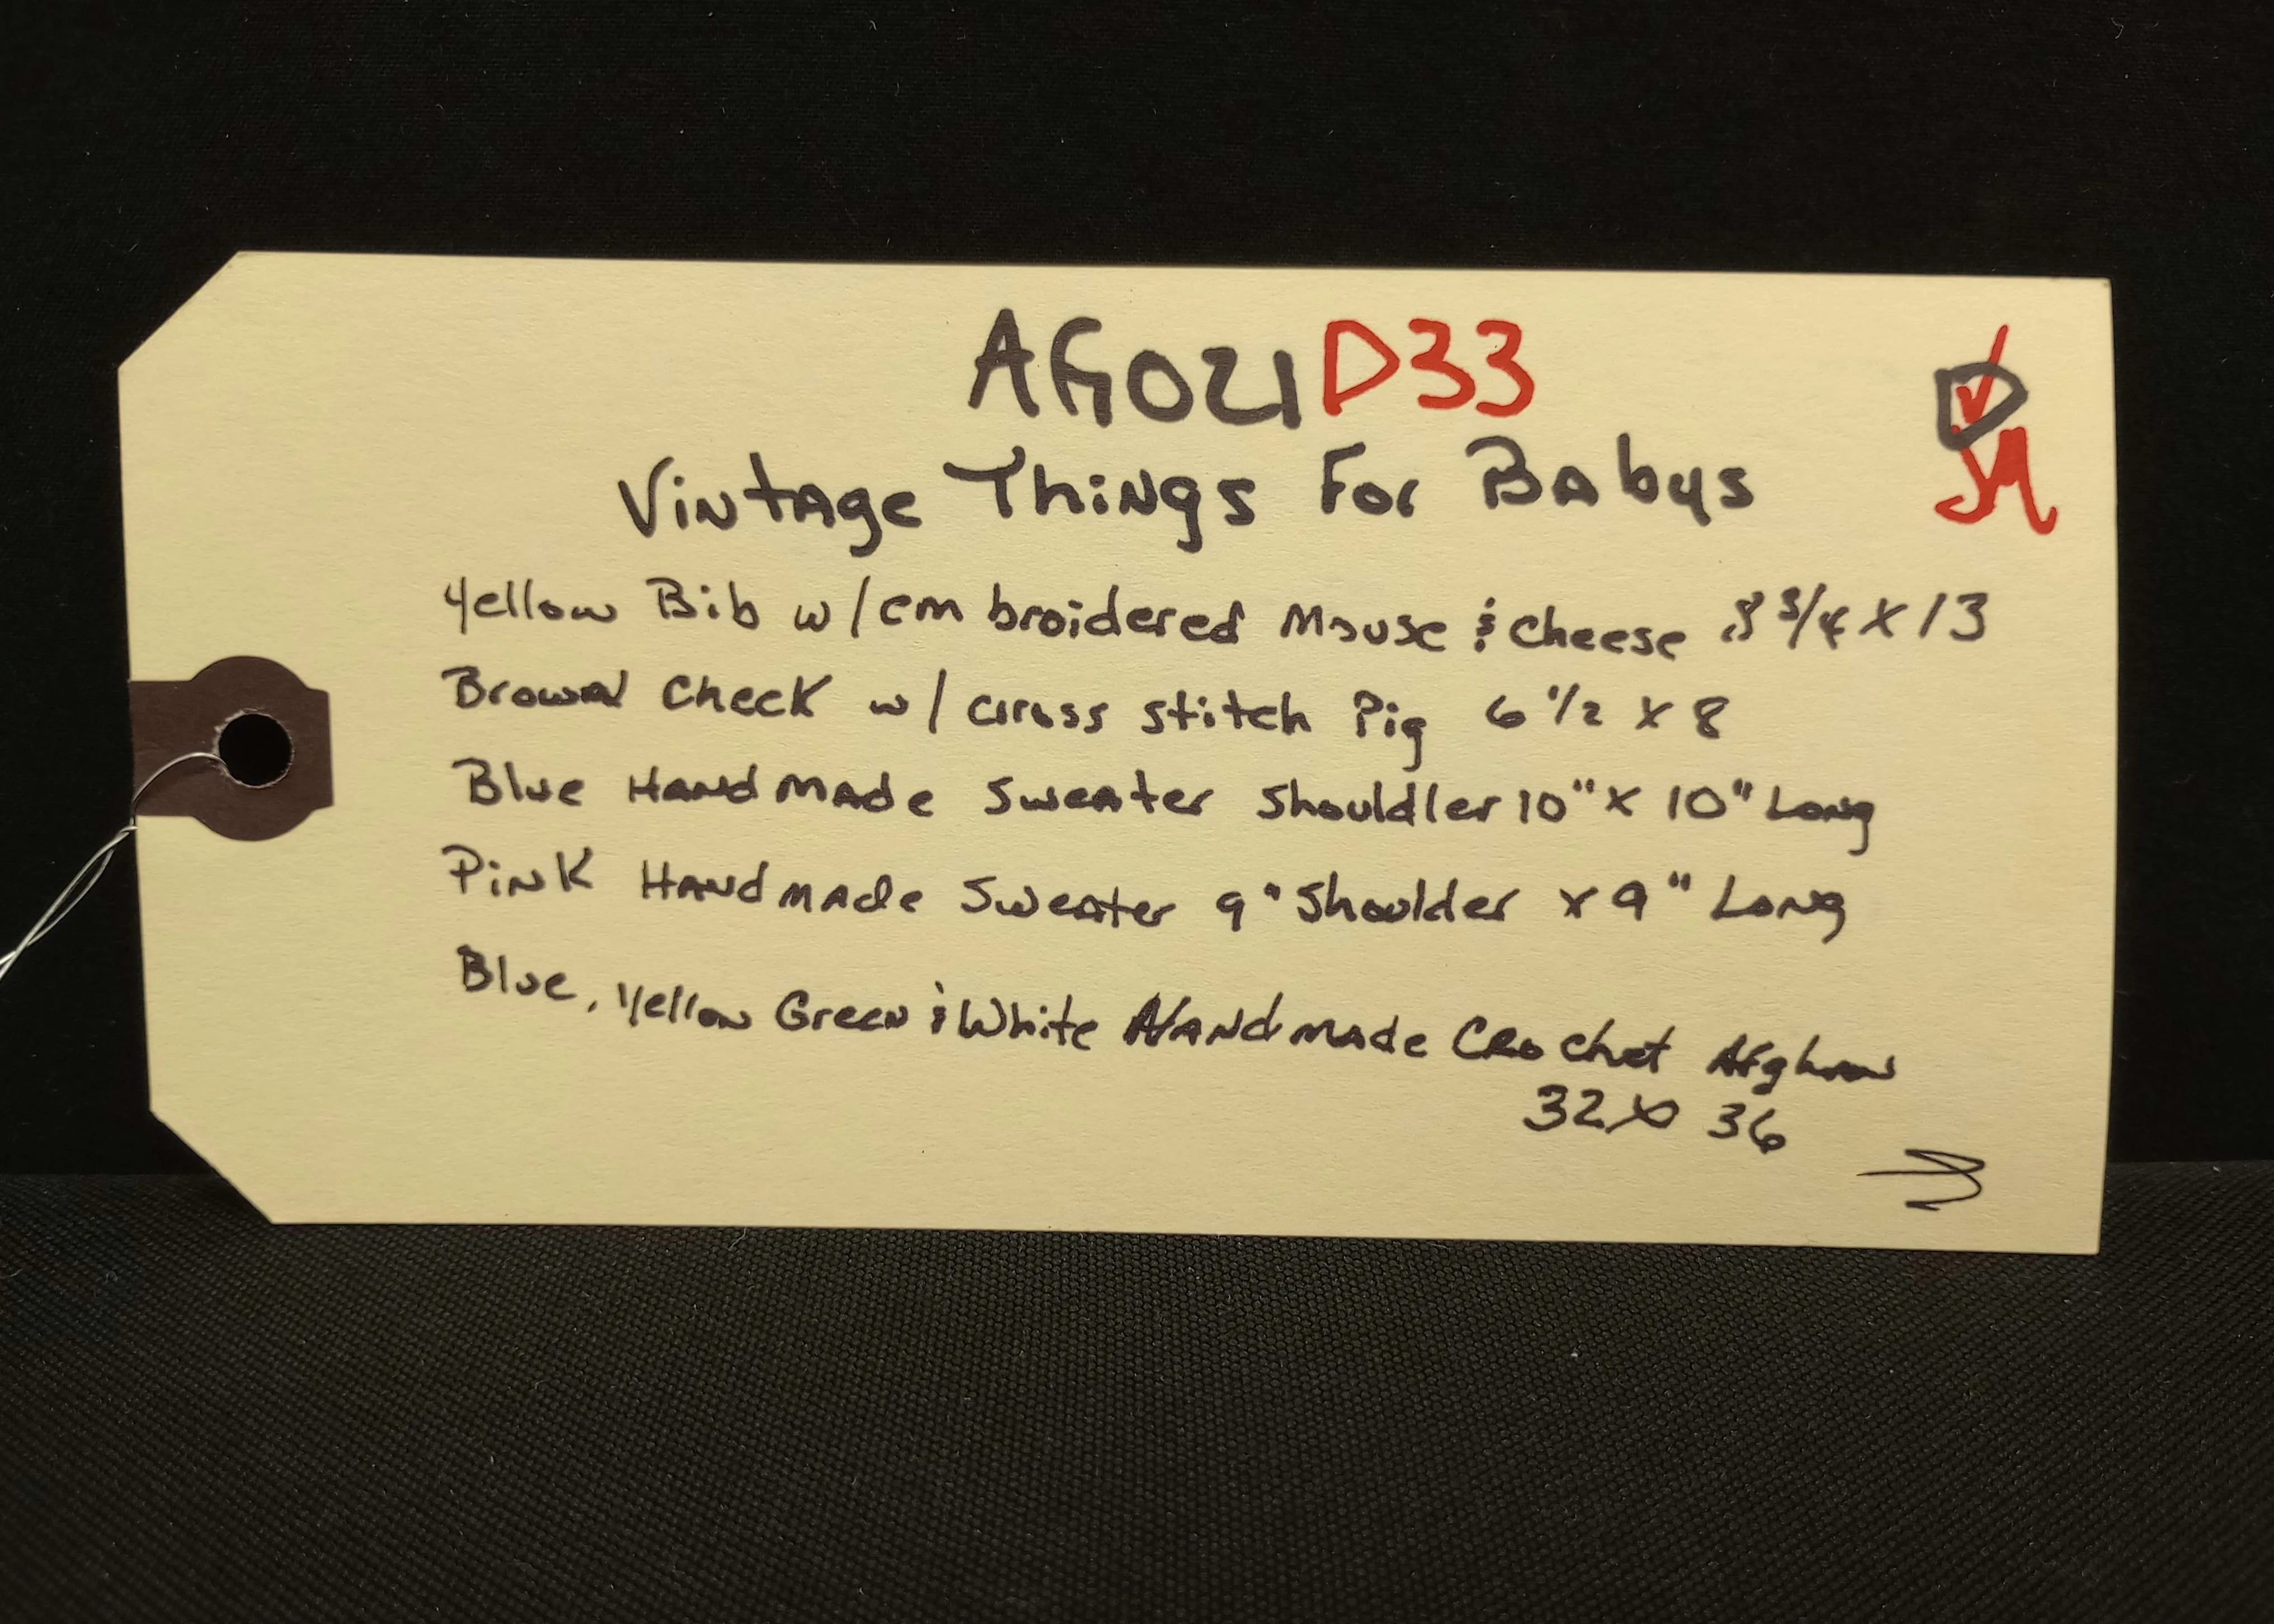 AG021D33
Vintage Things For Babys
Yellow Bib w/embroidered Mouse & Cheese 8 3/4 X 13
Brown Check w/ cross stitch Pig 6 1/2 X 8
Blue Handmade Sweater Shouldler 10" X 10" Long
Pink Handmade Sweater 9" Shoulder X 9" Long
Blue, Yellow Green & White Handmade Crochet Afghan
32 X 36